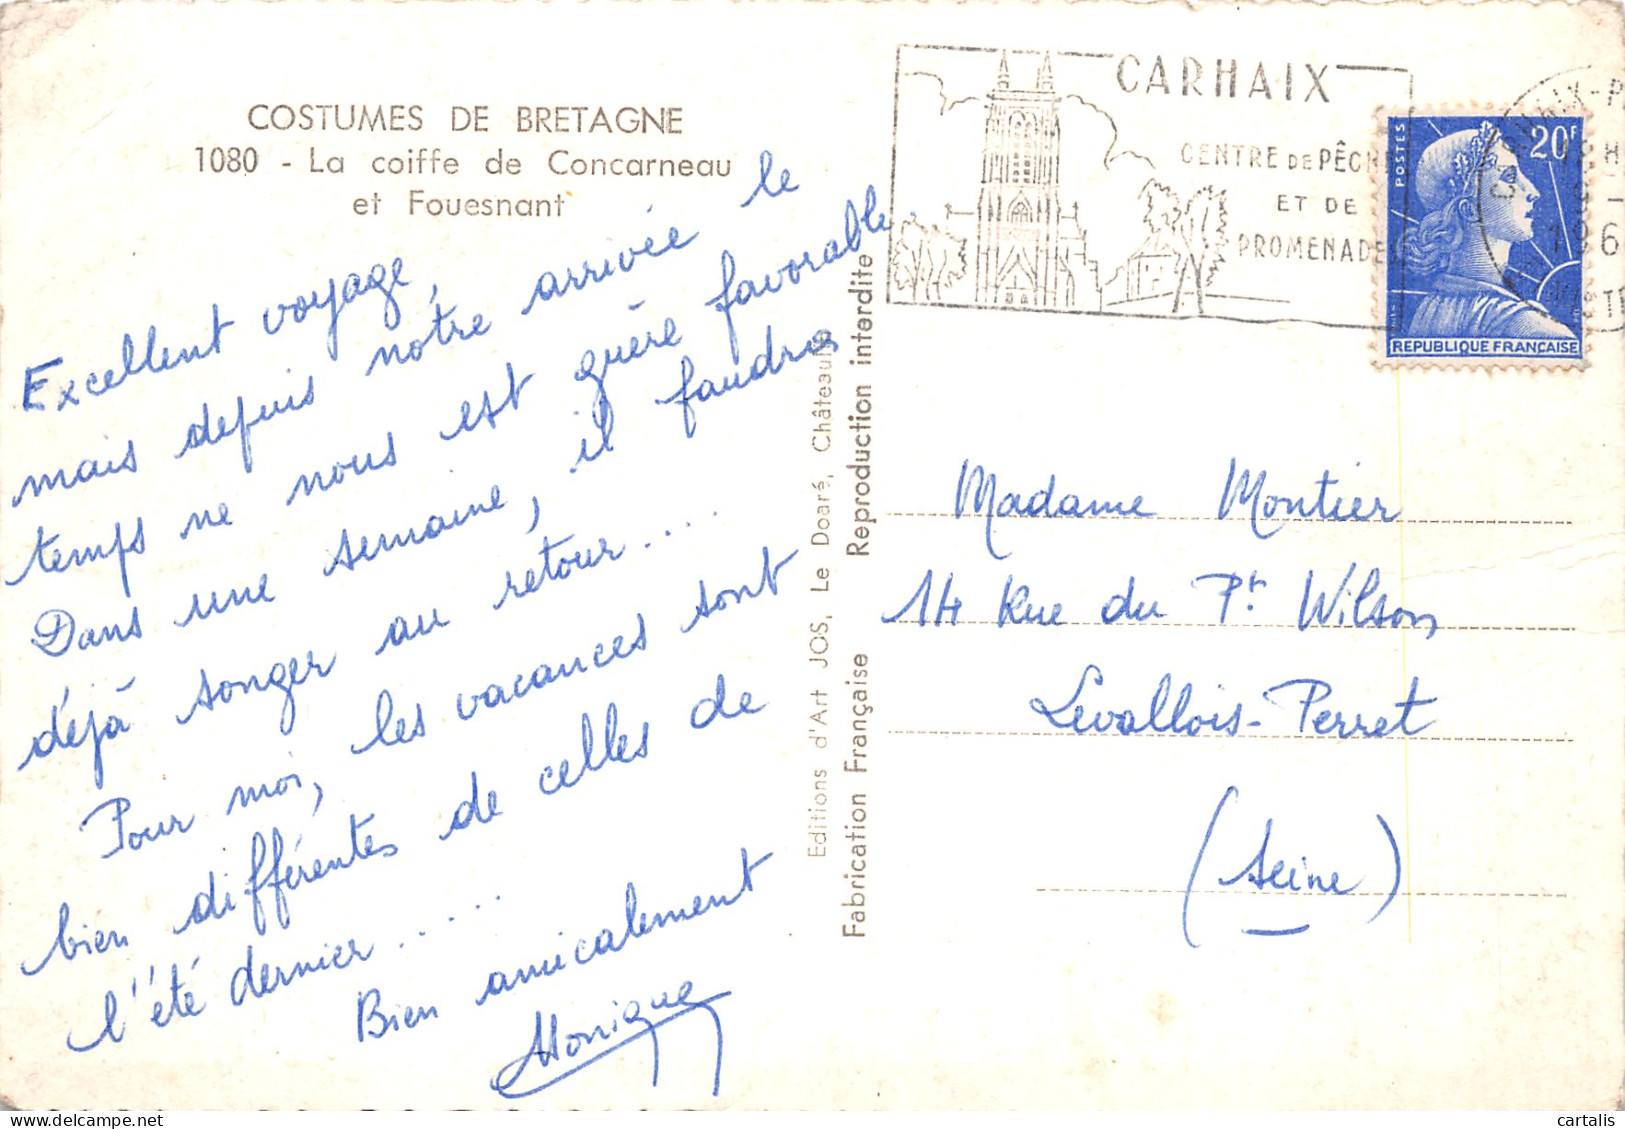 COSTUMES DE BRETAGNE
1080 - La coiffe de Concarneau
et Fouesnant
Excellent voyage,
mais depuis notre arrivée le
temps ne nous est guère favorable.
Dans une semaine, il faudra
déjà songer au retour...
Pour moi, les vacances sont
bien différentes de celles de
l'été dernier.....
Bien amicalement
Monique
Editions d'Art JOS, Le Doaré, Châteaulin
Fabrication Française Reproduction interdite
CARHAIX
CENTRE DE PÊCHE
ET DE
PROMENADES
POSTES
20F
REPUBLIQUE FRANÇAISE
Madame Montier
14 Rue du Pt Wilson
Levallois-Perret
(Seine)
cartalis